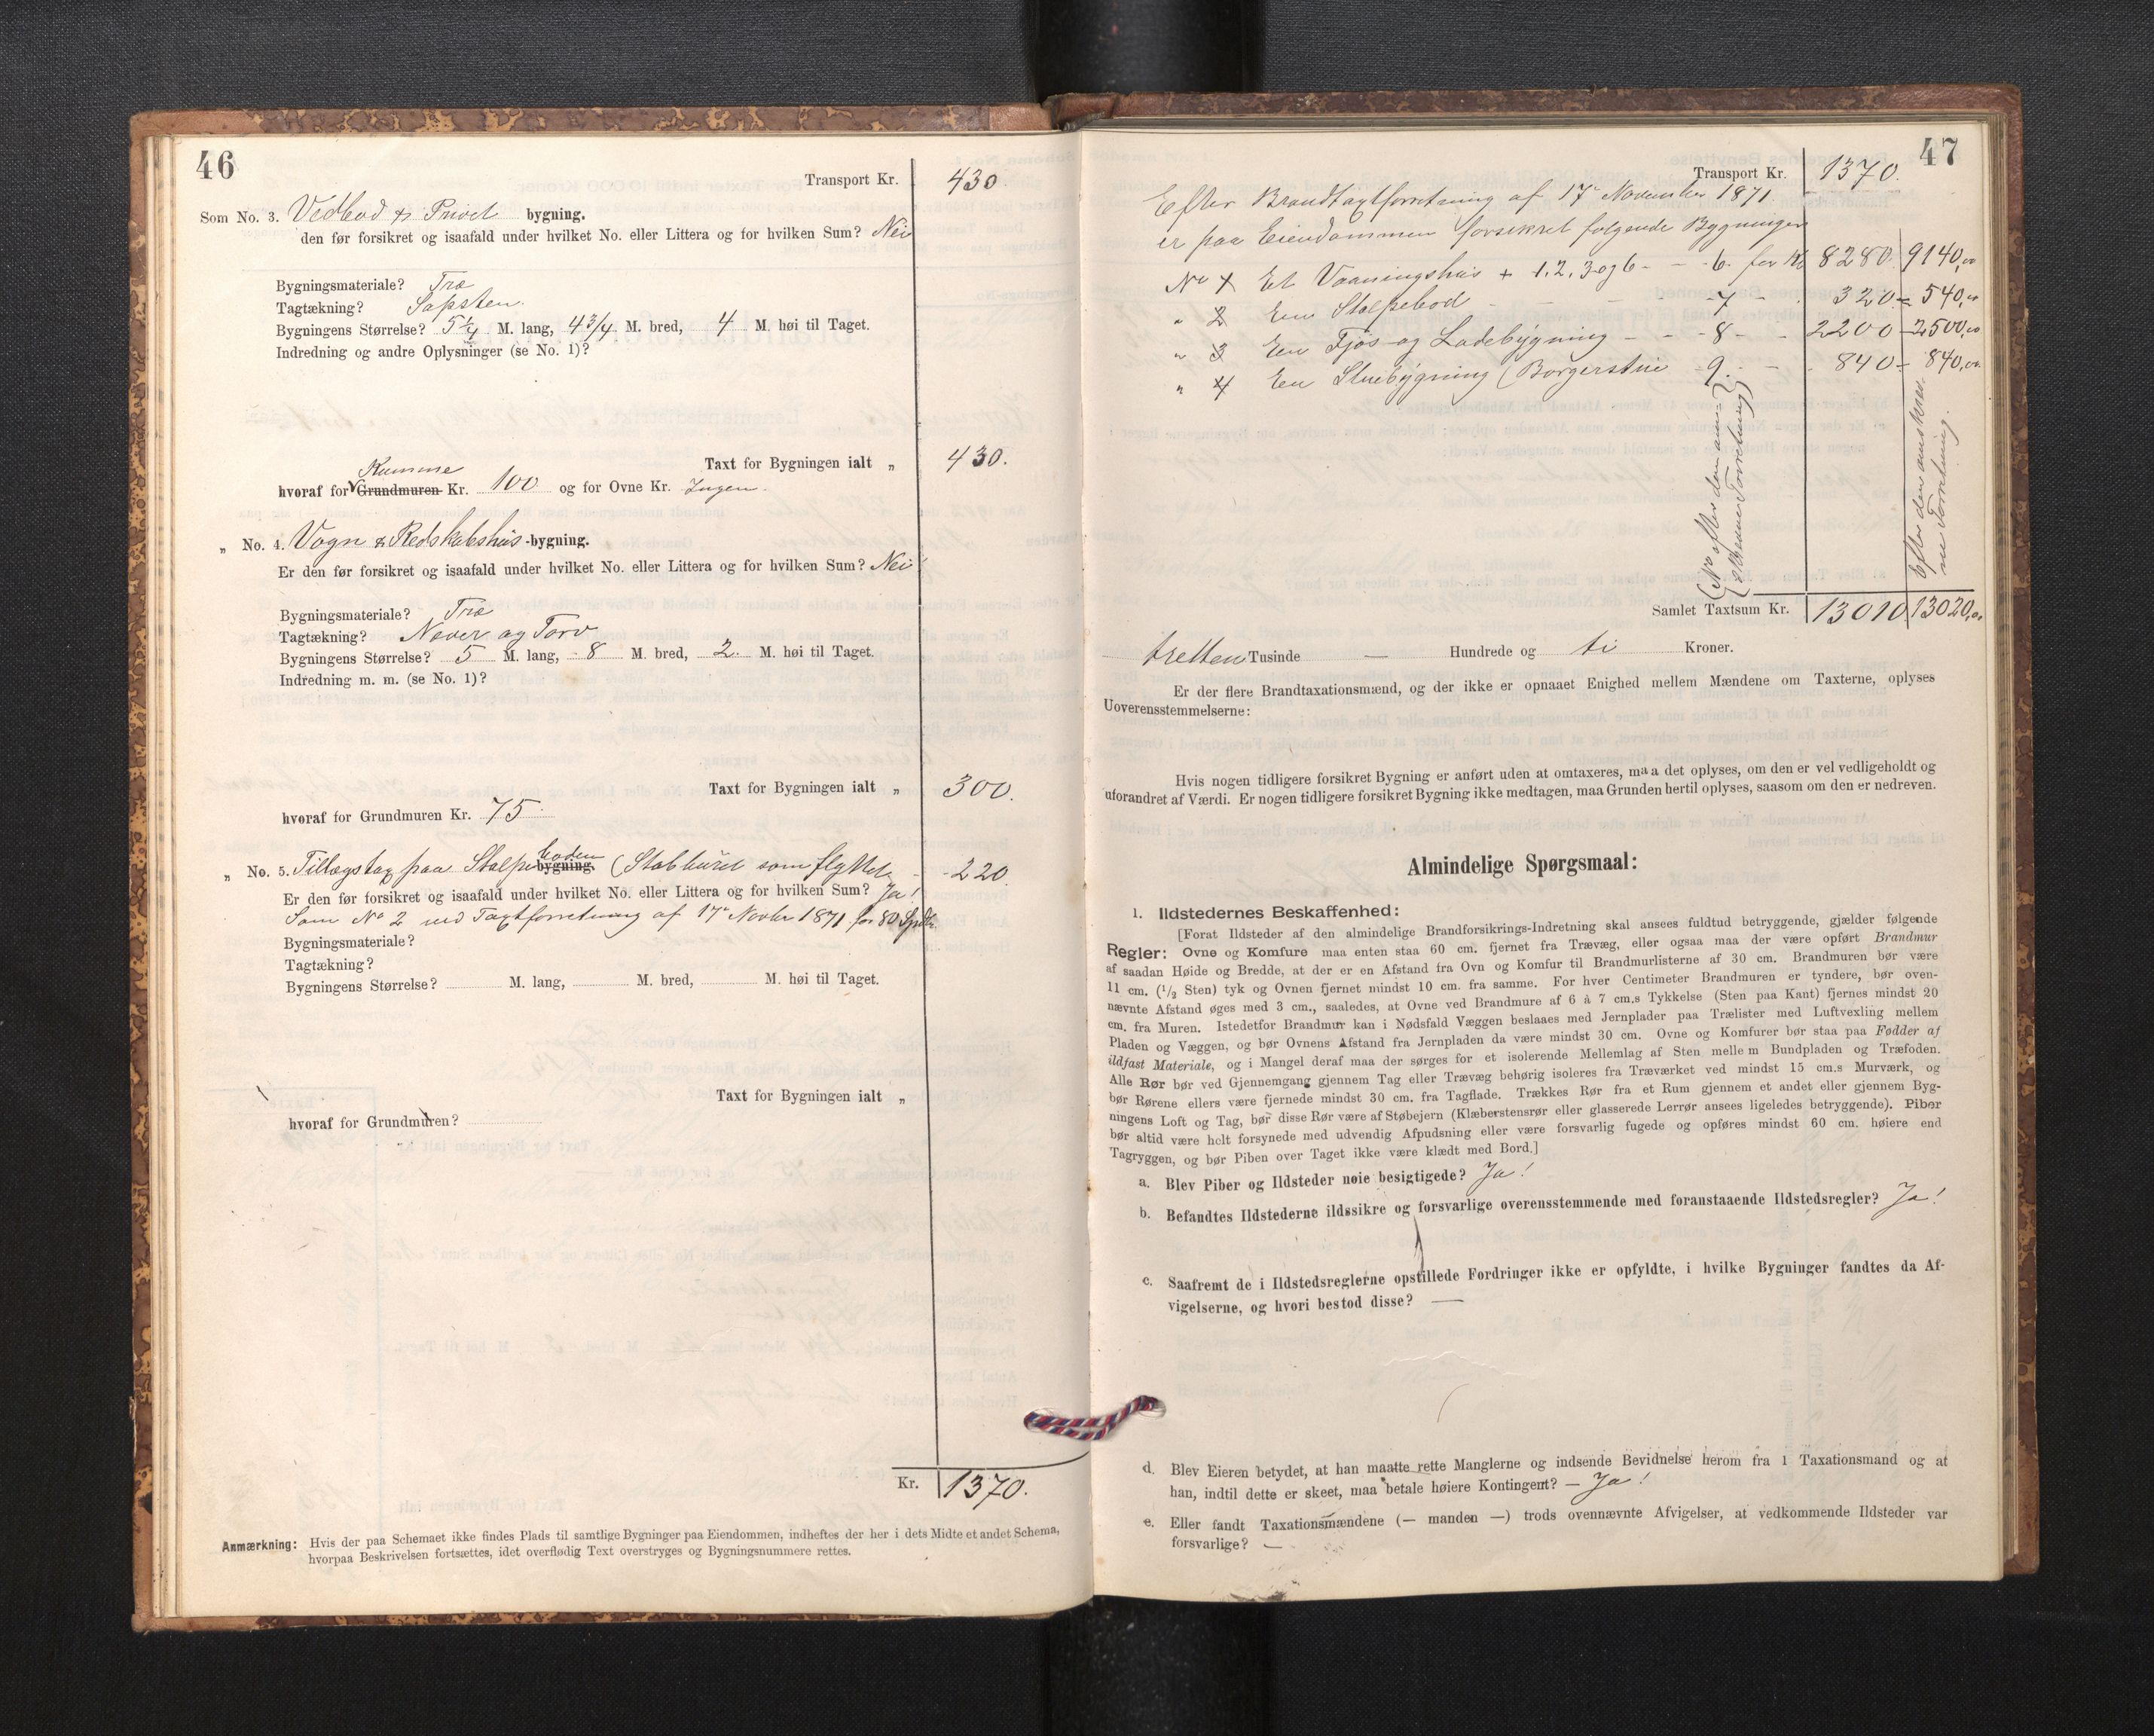 46
Transport Kr. 430.
Som No. 3. Vedbod & Privet bygning.
den før forsikret og isaafald under hvilket No. eller Littera og for hvilken Sum? Nei
Bygningsmateriale? Træ
Tagtækning? Sapsten.
Bygningens Størrelse? 5 1/4 M. lang, 4 3/4 M. bred, 4 M. høi til Taget.
Indredning og andre Oplysninger (se No. 1)?
Taxt for Bygningen ialt „ 430.
Kumme
hvoraf for Grundmuren Kr. 100 og for Ovne Kr. Ingen.
„ No. 4. Vogn & Redskabshus-bygning.
Er den før forsikret og isaafald under hvilket No. eller Littera og for hvilken Sum? Nei
Bygningsmateriale? Træ
Tagtækning? Never og Torv
Bygningens Størrelse? 5 M. lang, 8 M. bred, 2. M. høi til Taget.
Indredning m. m. (se No. 1)?
Taxt for Bygningen ialt „ 300.
hvoraf for Grundmuren Kr. 75
boden
„ No. 5. Tillægstax paa Stolpe bygning. (Stabburet som flyttet - - 220.
Er den før forsikret og isaafald under hvilket No. eller Littera og for hvilken Sum? Ja!
Som No 2 ved Taxtforretning af 17de Novbr 1871 for 80 Spdlr.
Bygningsmateriale?
Tagtækning?
Bygningens Størrelse? M. lang, M. bred, M. høi til Taget.
Taxt for Bygningen ialt „
hvoraf for Grundmuren?
Kr. 1370.
Anmærkning: Hvis der paa Schemaet ikke findes Plads til samtlige Bygninger paa Eiendommen, indheftes der her i dets Midte et andet Schema,
hvorpaa Beskrivelsen fortsættes, idet overflødig Text overstryges og Bygningsnummere rettes.
47
Transport Kr. 1370.
Efter Brandtaxtforretning af 17de November 1871
er paa Eiendommen forsikret følgende Bygninger
No 1 Et Vaaningshus + 1, 2, 3 og 6 - - 6. for Kr 8280. 9140,00
„ 2 En Stolpebod - - - - 7 - . 320 = 540,00
„ 3 En Fjøs og Ladebygning - - - 8 - - 2200 - 2500,00
„ 4 En Stuebygning (Borgerstue - 9. - . 840 = 840,00
(No efter den
Forretning)
Efter
Forretning.
Samlet Taxtsum Kr. 13010 13020,00
tretten Tusinde — Hundrede og ti Kroner.
Er der flere Brandtaxationsmænd, og der ikke er opnaaet Enighed mellem Mændene om Taxterne, oplyses
Uoverensstemmelserne:
Hvis nogen tidligere forsikret Bygning er anført uden at omtaxeres, maa det oplyses, om den er vel vedligeholdt og
uforandret af Værdi. Er nogen tidligere forsikret Bygning ikke medtagen, maa Grunden hertil oplyses, saasom om den er nedreven.
Almindelige Spørgsmaal:
1. Ildstedernes Beskaffenhed:
[Forat Ildsteder af den almindelige Brandforsikrings-Indretning skal ansees fuldtud betryggende, gjælder følgende
Regler: Ovne og Komfure maa enten staa 60 cm. fjernet fra Trævæg, eller ogsaa maa der være opført Brandmur
af saadan Høide og Bredde, at der er en Afstand fra Ovn og Komfur til Brandmurlisterne af 30 cm. Brandmuren bør være
11 cm. (1/2 Sten) tyk og Ovnen fjernet mindst 10 cm. fra samme. For hver Centimeter Brandmuren er tyndere, bør oven-
nævnte Afstand øges med 3 cm., saaledes, at Ovne ved Brandmure af 6 à 7 cm.s Tykkelse (Sten paa Kant) fjernes mindst 20
cm. fra Muren. Istedetfor Brandmur kan i Nødsfald Væggen beslaaes med Jernplader paa Trælister med Luftvexling mellem
Pladen og Væggen, og bør Ovnens Afstand fra Jernpladen da være mindst 30 cm. Ovne og Komfurer bør staa paa Fødder af
ildfast Materiale, og i Mangel deraf maa der sørges for et isolerende Mellemlag af Sten mellem Bundpladen og Træfoden.
Alle Rør bør ved Gjennemgang gjennem Tag eller Trævæg behørig isoleres fra Træværket ved mindst 15 cm.s Murværk, og
bør Rørene ellers være fjernede mindst 30 cm. fra Tagflade. Trækkes Rør fra et Rum gjennem et andet eller gjennem Byg-
ningens Loft og Tag, bør disse Rør være af Støbejern (Klæberstensrør eller glasserede Lerrør ansees ligeledes betryggende). Piber
bør altid være helt forsynede med udvendig Afpudsning eller være forsvarlig fugede og opføres mindst 60 cm. høiere end
Tagryggen, og bør Piben over Taget ikke være klædt med Bord.]
a. Blev Piber og Ildsteder nøie besigtigede? Ja!
b. Befandtes Ildstederne ildssikre og forsvarlige overensstemmende med foranstaaende Ildstedsregler? Ja!
c. Saafremt de i Ildstedsreglerne opstillede Fordringer ikke er opfyldte, i hvilke Bygninger fandtes da Af-
vigelserne, og hvori bestod disse? —
d. Blev Eieren betydet, at han maatte rette Manglerne og indsende Bevidnelse herom fra 1 Taxationsmand og at
han, indtil dette er skeet, maa betale høiere Kontingent? — Ja!
e. Eller fandt Taxationsmændene (— manden —) trods ovennævnte Afvigelser, at vedkommende Ildsteder var
forsvarlige? —